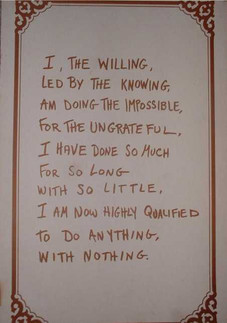 I, THE WILLING,
LED BY THE KNOWING,
AM DOING THE IMPOSSIBLE,
FOR THE UNGRATEFUL,
I HAVE DONE SO MUCH
FOR SO LONG
WITH SO LITTLE,
I AM NOW HIGHLY QUALIFIED
TO DO ANYTHING,
WITH NOTHING.